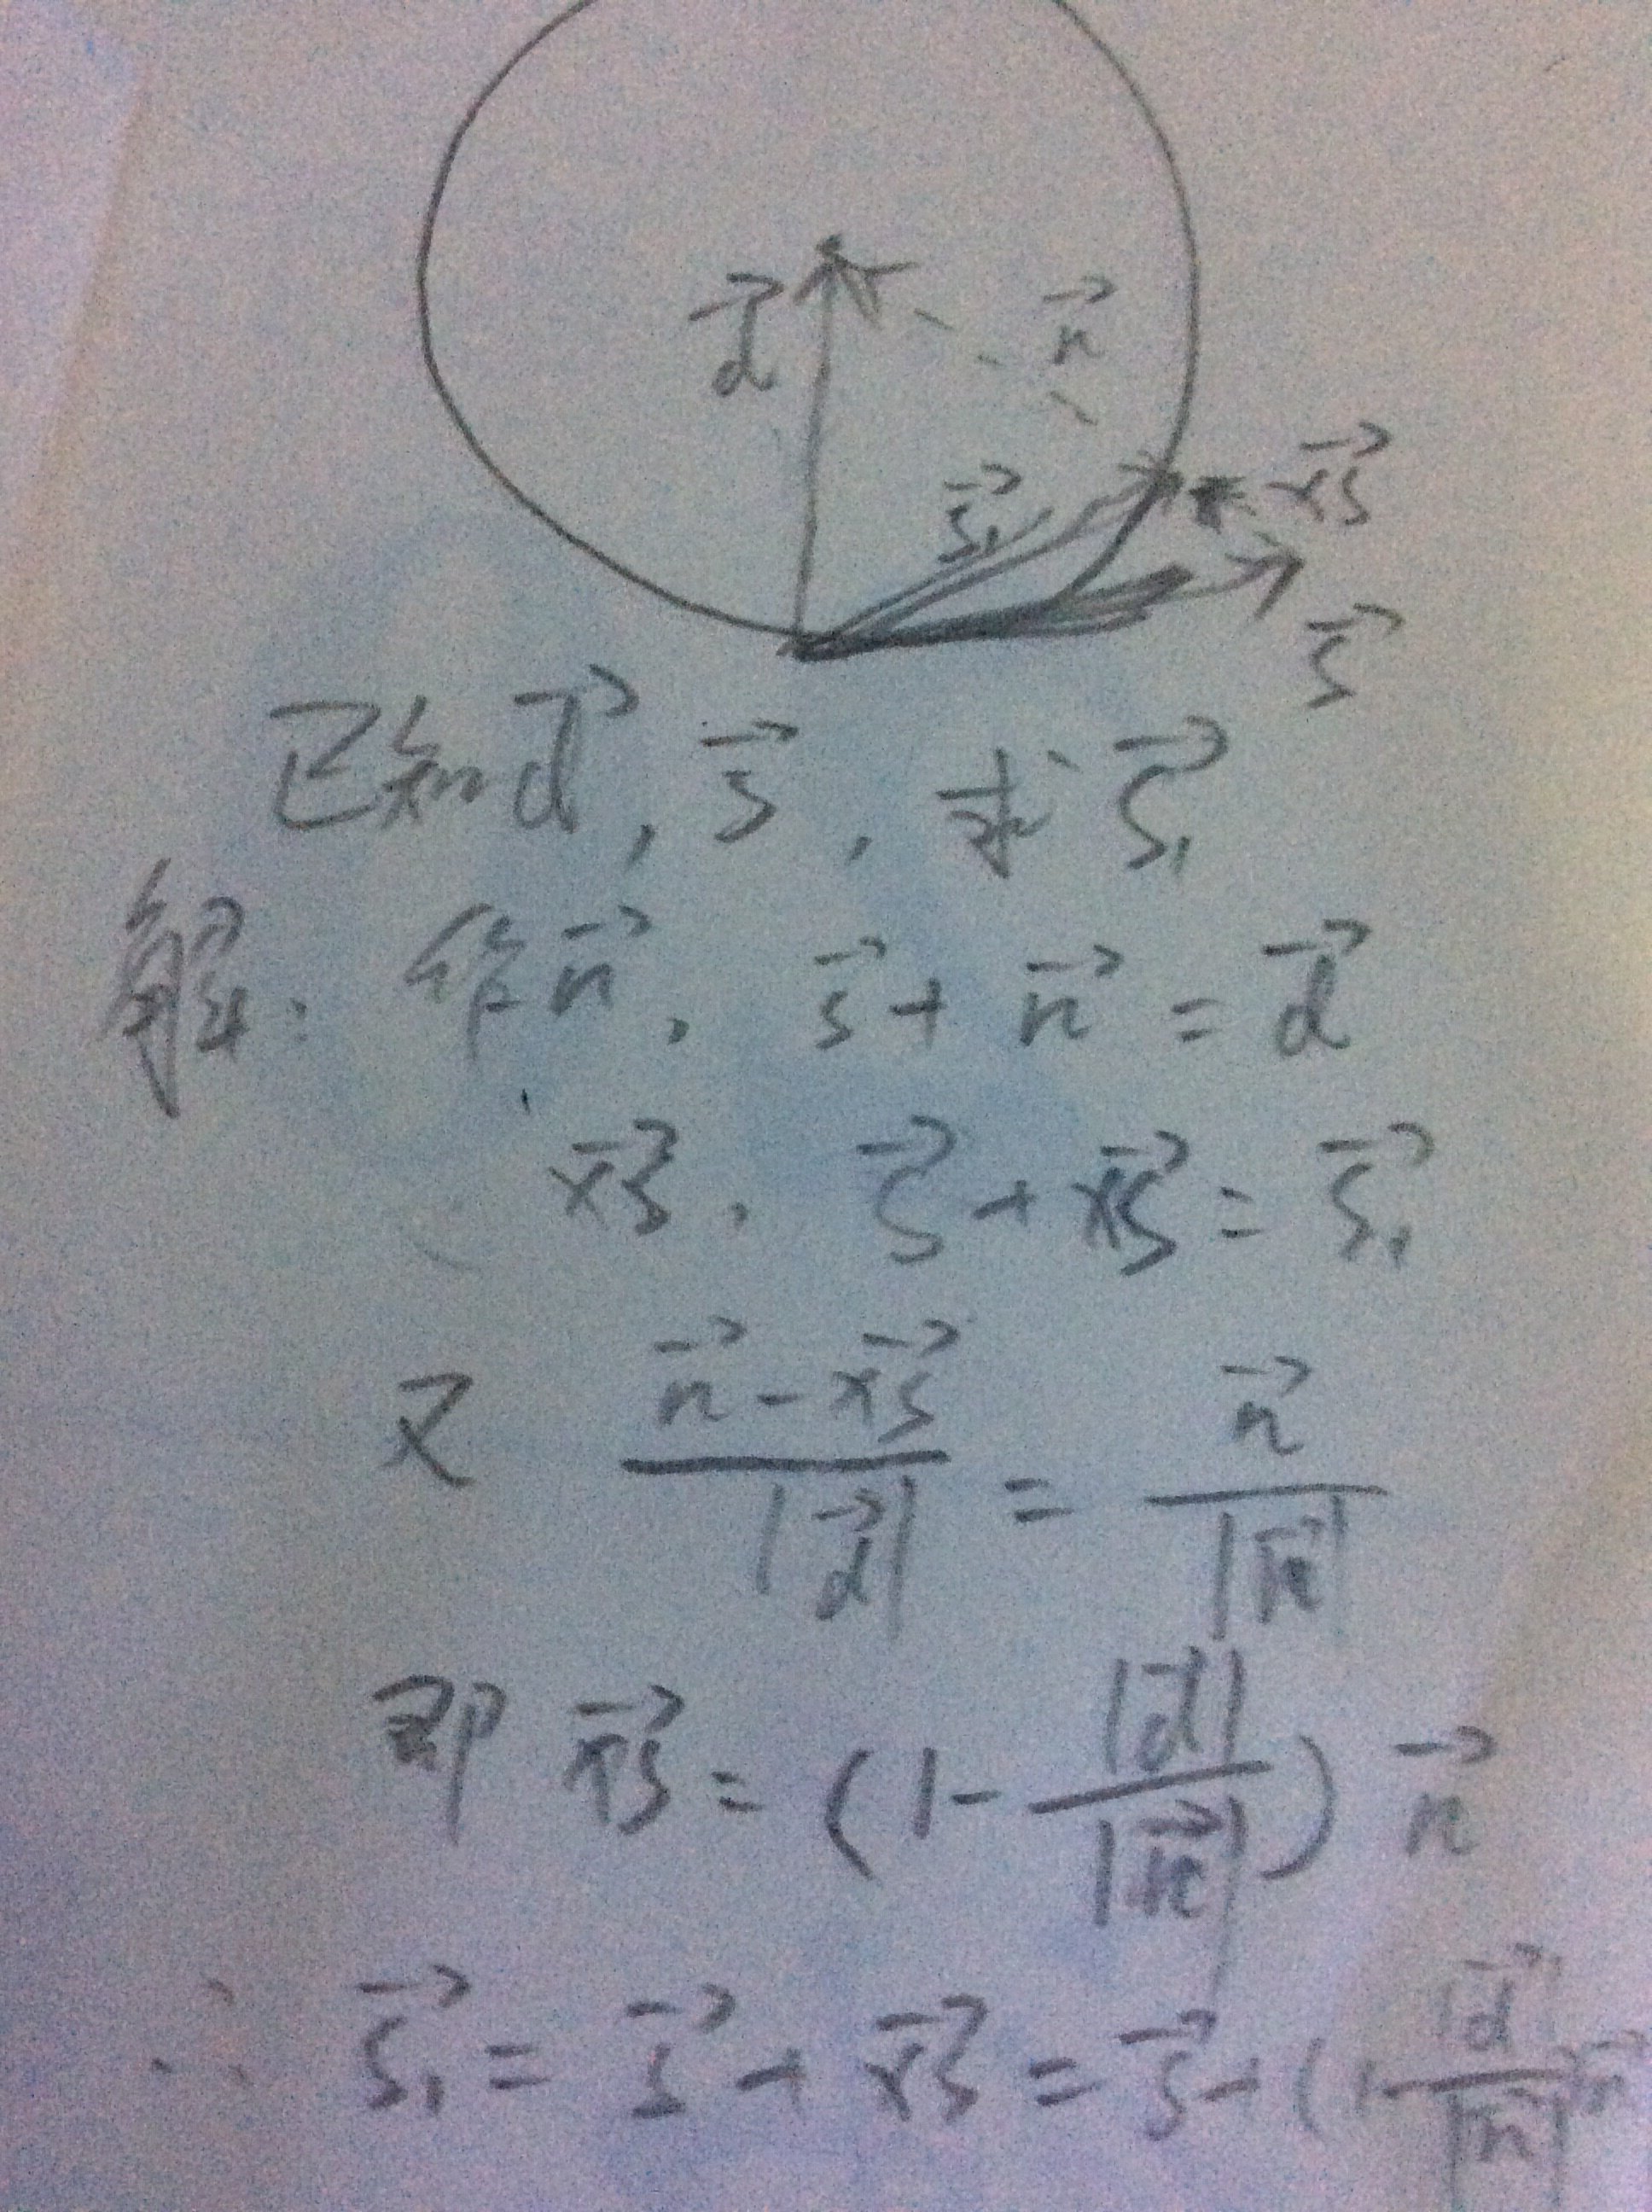 d⃗ n⃗
s⃗₁ xs⃗
s⃗
已知d⃗, s⃗, 求 s⃗₁
解: 作n⃗, s⃗ + n⃗ = d⃗
xs⃗, s⃗ + xs⃗ = s⃗₁
又 (n⃗ - xs⃗)/|d⃗| = n⃗/|n⃗|
即 xs⃗ = (1 - |d⃗|/|n⃗|) n⃗
∴ s⃗₁ = s⃗ + xs⃗ = s⃗ + (1 - |d⃗|/|n⃗|) n⃗